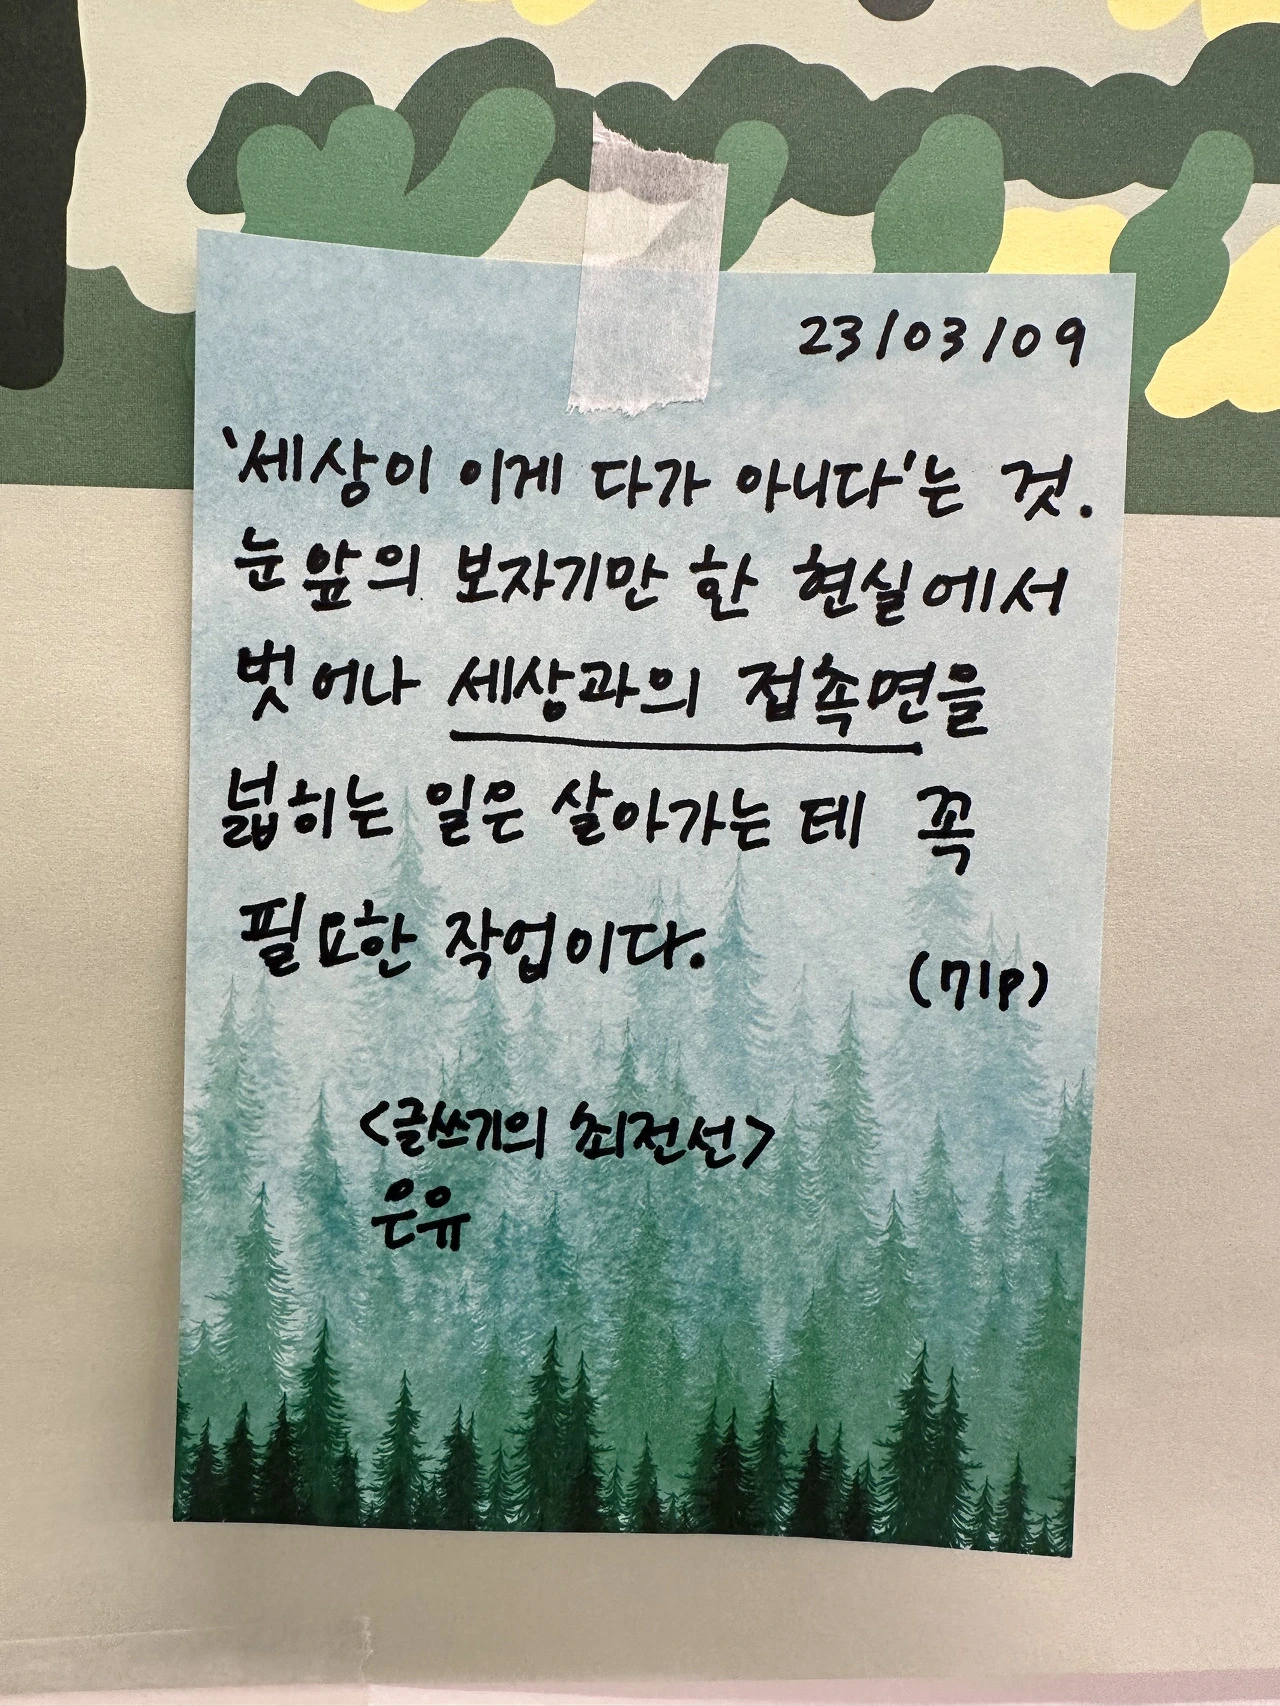 23/03/09
'세상이 이게 다가 아니다'는 것.
눈앞의 보자기만 한 현실에서
벗어나 세상과의 접촉면을
넓히는 일은 살아가는 데 꼭
필요한 작업이다.
(71p)
<글쓰기의 최전선>
은유